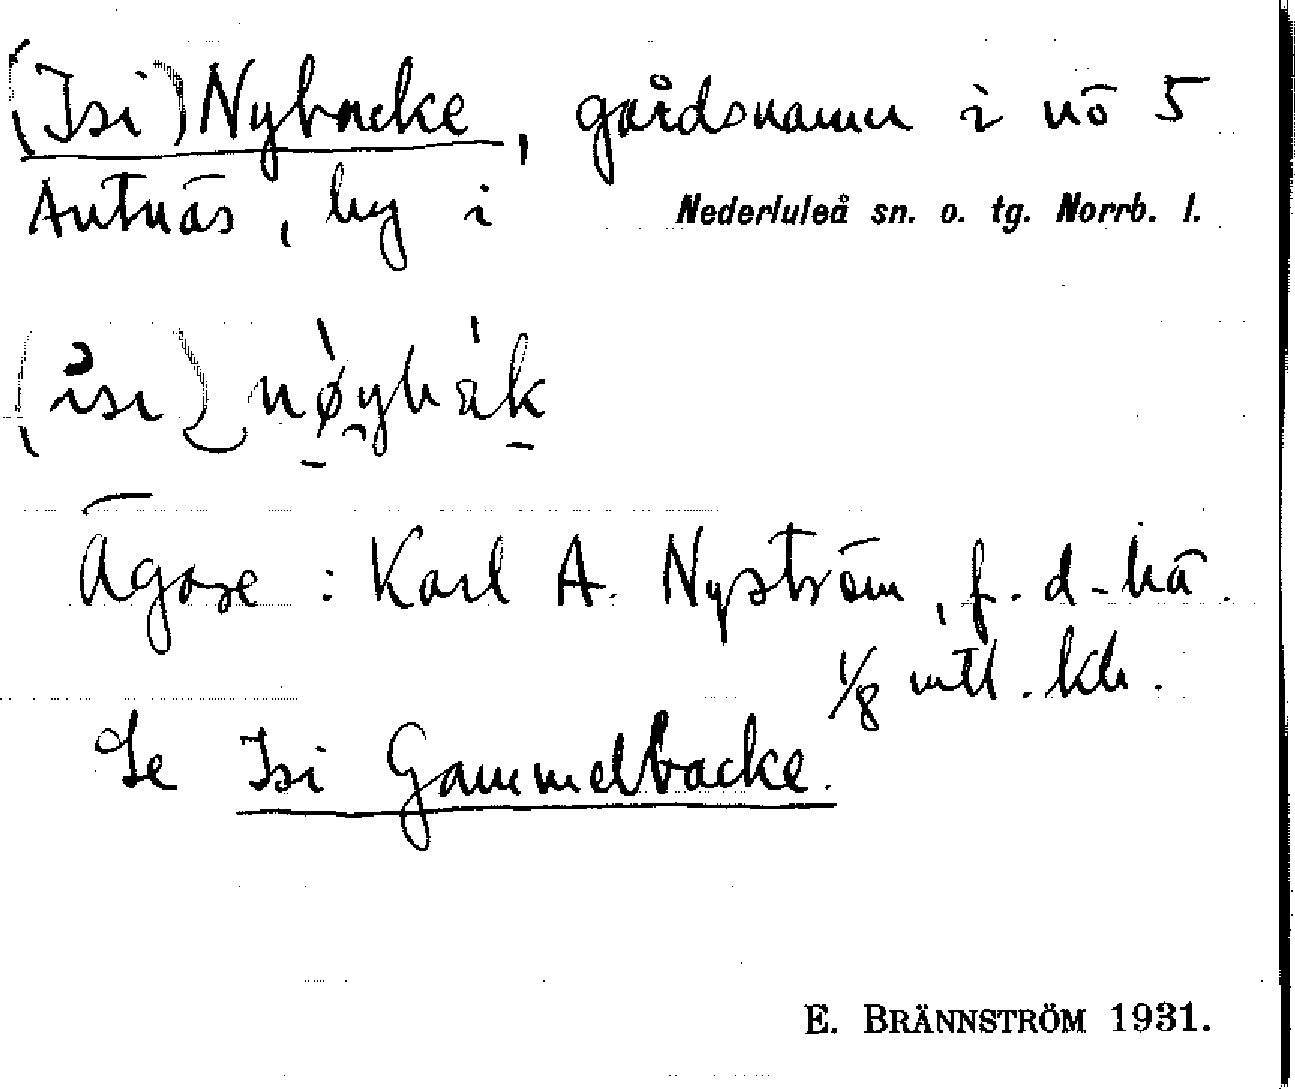 (Isi) Nybacke, gårdsnamn i nō 5
Antnäs, by i Nederluleå sn. o. tg. Norrb. l.
(isi) nøybak
Ägare : Karl A. Nyström, f. d.
1/8 mtl.
Se Isi Gammelbacke.
E. BRÄNNSTRÖM 1931.